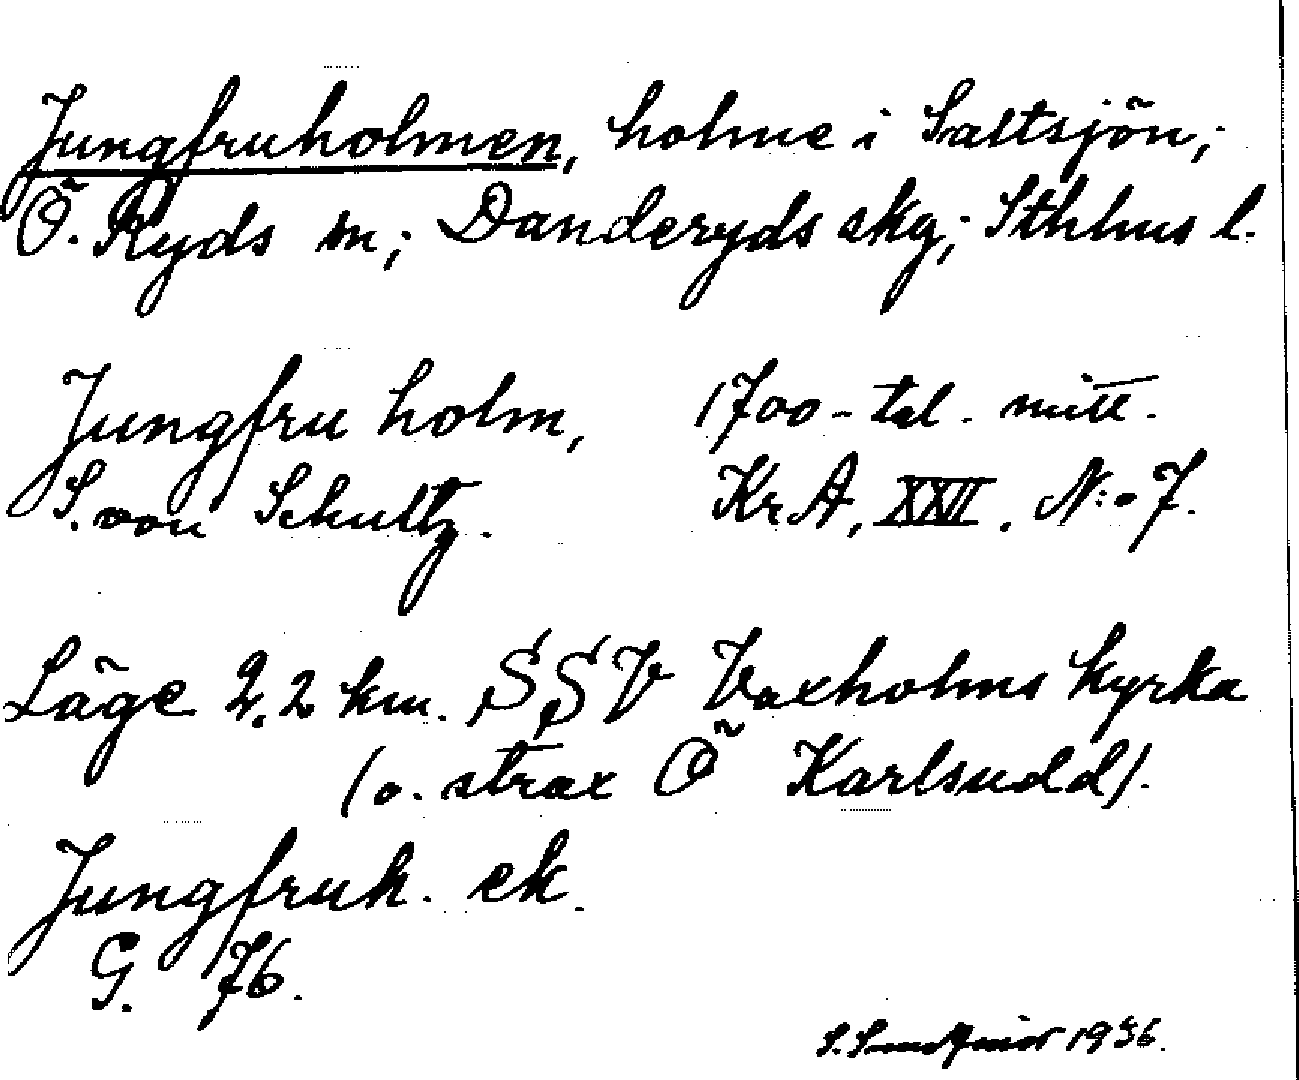 Jungfruholmen, holme i Saltsjön;
Ö. Ryds sn; Danderyds skg; Sthlms l.
Jungfru holm, 1700-tal. mitt.
S. von Schultz. KrA, XXII. N:o 7.
Läge 2,2 km. SSV Vaxholms kyrka
(o. strax Ö Karlsudd).
Jungfruh. ek.
G. 76.
S. 1936.